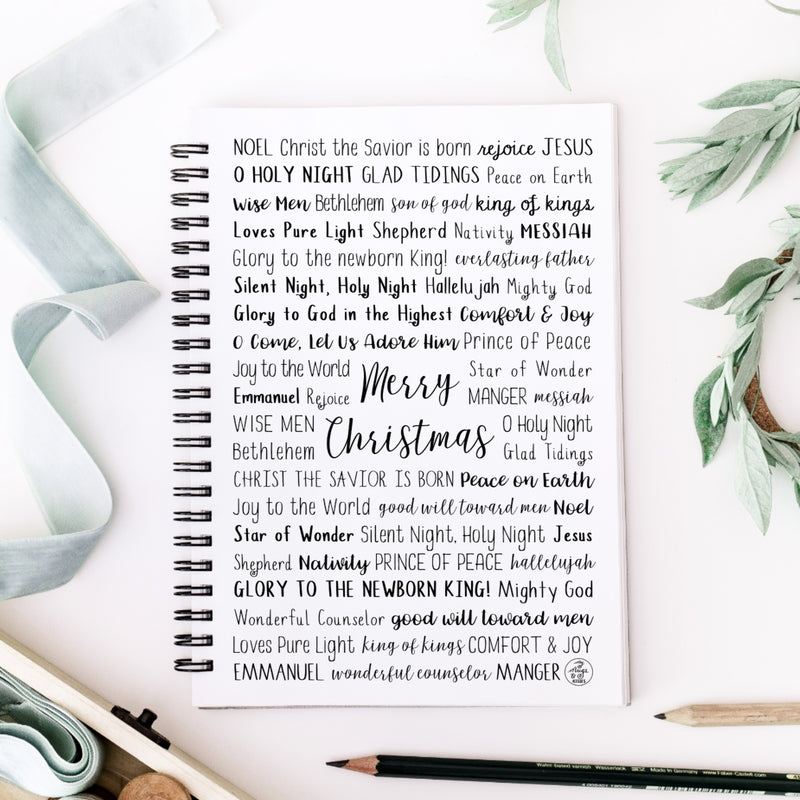 NOEL Christ the Savior is born rejoice JESUS
O HOLY NIGHT GLAD TIDINGS Peace on Earth
Wise Men Bethlehem son of god king of kings
Loves Pure Light Shepherd Nativity MESSIAH
Glory to the newborn King! everlasting father
Silent Night, Holy Night Hallelujah Mighty God
Glory to God in the Highest Comfort & Joy
O Come, Let Us Adore Him Prince of Peace
Joy to the World
Emmanuel Rejoice
Merry
Star of Wonder
MANGER messiah
WISE MEN
Bethlehem
Christmas
O Holy Night
Glad Tidings
CHRIST THE SAVIOR IS BORN Peace on Earth
Joy to the World good will toward men Noel
Star of Wonder Silent Night, Holy Night Jesus
Shepherd Nativity PRINCE OF PEACE hallelujah
GLORY TO THE NEWBORN KING! Mighty God
Wonderful Counselor good will toward men
Loves Pure Light king of kings COMFORT & JOY
EMMANUEL wonderful counselor MANGER
Made in Germany www.Faber-Castell.com